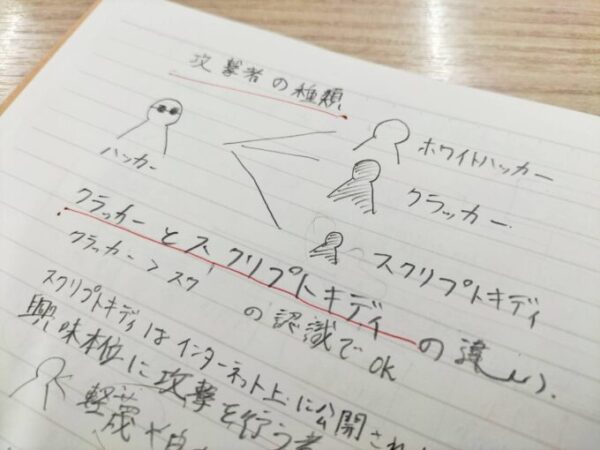 攻撃者の種類
ハッカー
ホワイトハッカー
クラッカー
スクリプトキディ
クラッカーとスクリプトキディの違い
クラッカー > スク の認識でOK
スクリプトキディはインターネット上に公開され
興味本位に攻撃を行う者
軽蔑や